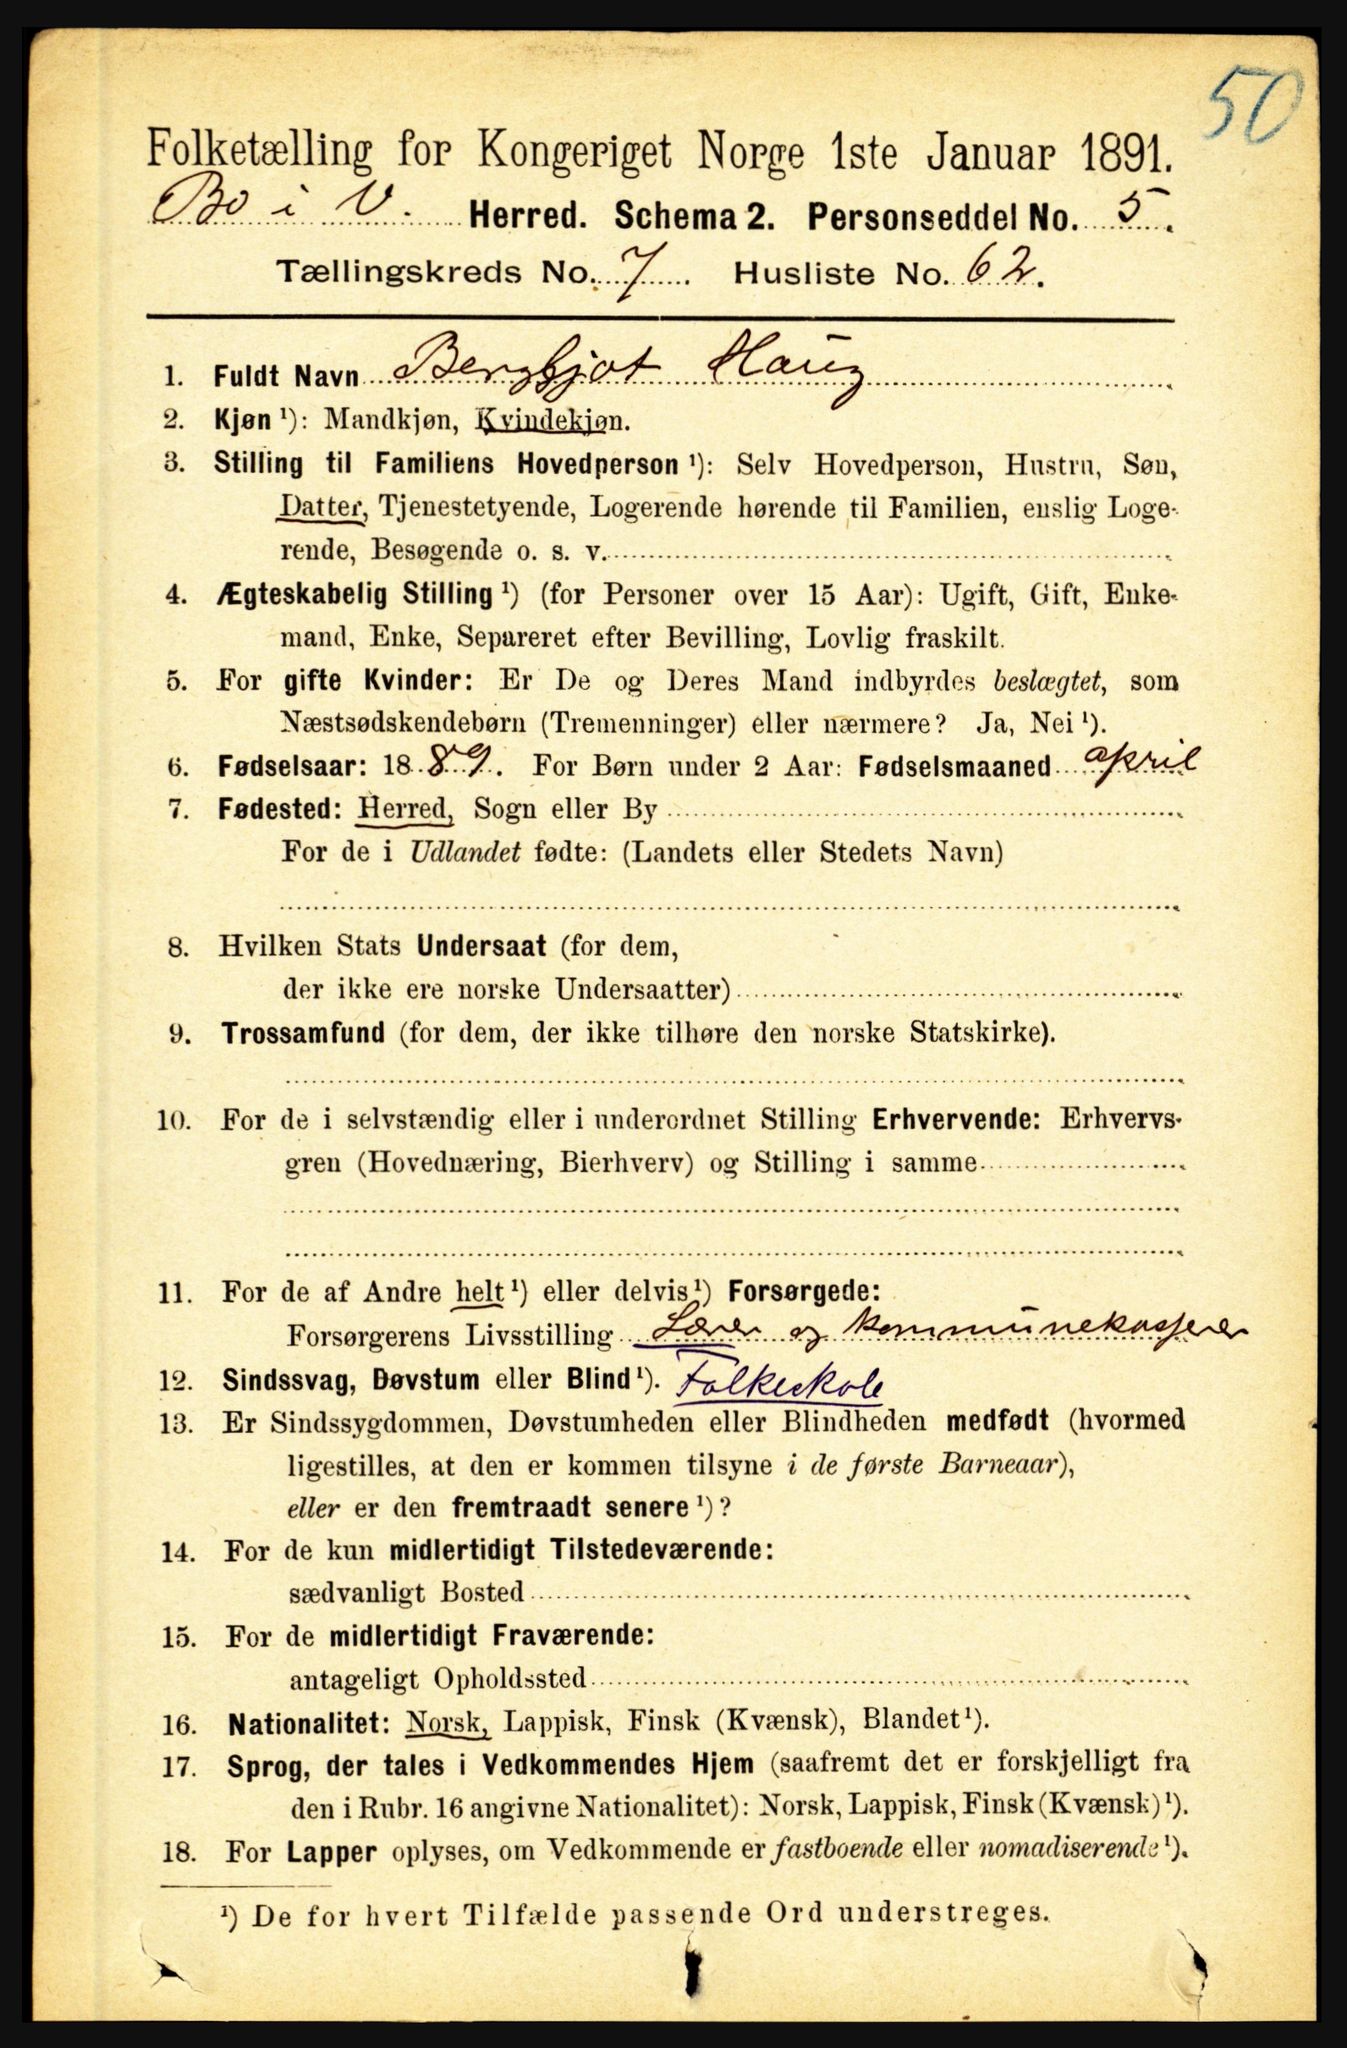 50
Folketælling for Kongeriget Norge 1ste Januar 1891.
Bo i V. Herred. Schema 2. Personseddel No. 5.
Tællingskreds No. 7. Husliste No. 62.
1. Fuldt Navn Bergljot Haug
2. Kjøn ¹): Mandkjøn, Kvindekjøn.
3. Stilling til Familiens Hovedperson ¹): Selv Hovedperson, Hustru, Søn,
Datter, Tjenestetyende, Logerende hørende til Familien, enslig Loge-
rende, Besøgende o. s. v.
4. Ægteskabelig Stilling ¹) (for Personer over 15 Aar): Ugift, Gift, Enke-
mand, Enke, Separeret efter Bevilling, Lovlig fraskilt.
5. For gifte Kvinder: Er De og Deres Mand indbyrdes beslægtet, som
Næstsødskendebørn (Tremenninger) eller nærmere? Ja, Nei ¹).
6. Fødselsaar: 1889. For Børn under 2 Aar: Fødselsmaaned april
7. Fødested: Herred, Sogn eller By
For de i Udlandet fødte: (Landets eller Stedets Navn)
8. Hvilken Stats Undersaat (for dem,
der ikke ere norske Undersaatter)
9. Trossamfund (for dem, der ikke tilhøre den norske Statskirke).
10. For de i selvstændig eller i underordnet Stilling Erhvervende: Erhvervs-
gren (Hovednæring, Bierhverv) og Stilling i samme
11. For de af Andre helt ¹) eller delvis ¹) Forsørgede:
Forsørgerens Livsstilling Lærer og kommunekasserer
12. Sindssvag, Døvstum eller Blind ¹). Folkeskole
13. Er Sindssygdommen, Døvstumheden eller Blindheden medfødt (hvormed
ligestilles, at den er kommen tilsyne i de første Barneaar),
eller er den fremtraadt senere ¹)?
14. For de kun midlertidigt Tilstedeværende:
sædvanligt Bosted
15. For de midlertidigt Fraværende:
antageligt Opholdssted
16. Nationalitet: Norsk, Lappisk, Finsk (Kvænsk), Blandet ¹).
17. Sprog, der tales i Vedkommendes Hjem (saafremt det er forskjelligt fra
den i Rubr. 16 angivne Nationalitet): Norsk, Lappisk, Finsk (Kvænsk) ¹).
18. For Lapper oplyses, om Vedkommende er fastboende eller nomadiserende ¹).
¹) De for hvert Tilfælde passende Ord understreges.